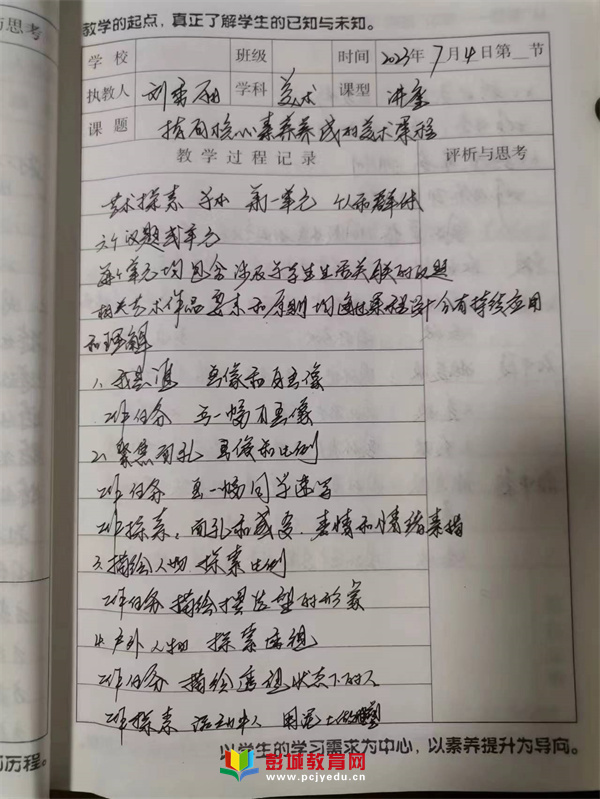 与思考
教学的起点，真正了解学生的已知与未知。
学 校 班级 时间 2023年 7月4日第 节
执教人 刘 学科 美术 课型 讲座
课 题 指向核心素养养成的美术课程
教 学 过 程 记 录 评析与思考
艺术探索 第一单元 个人和群体
六个议题或单元
每个单元均包含涉及与学生生活关联的议题
相关艺术作品要求和原则均通过课程设计分有持续应用
和理解
1、我是谁 画像和自画像
工作任务 画一幅自画像
2、聚焦面孔 画像和比例
工作任务 画一幅同学速写
工作探索：面孔和感受、表情和情绪素描
3、描绘人物 探索比例
工作任务 描绘摆造型的形象
4、户外人物 探索
工作任务 描绘状态下的人
工作探索 活动中人 用泥土做雕塑
以学生的学习需求为中心，以素养提升为导向。
历程。
彭城教育网
www.pcjyedu.cn